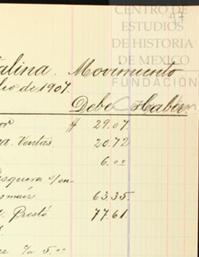 CENTRO DE
ESTUDIOS
DE HISTORIA
DE MEXICO
FUNDACIÓN
97
alina. Movimiento
lio de 1907.
Debe Haber
or $ 29.07
a. Ventas 20.72
6.00
squera s/en
smair 63.35
a. Prestó 77.61